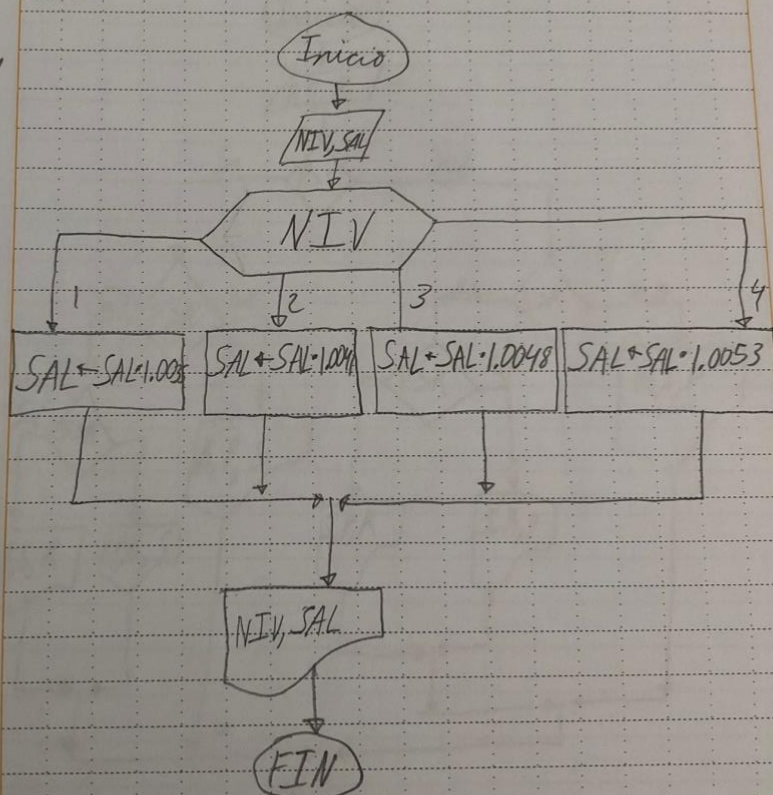 Inicio
NIV, SAL
NIV
1
2
3
4
SAL ← SAL·1.0035
SAL ← SAL·1.0041
SAL ← SAL·1.0048
SAL ← SAL·1.0053
NIV, SAL
FIN